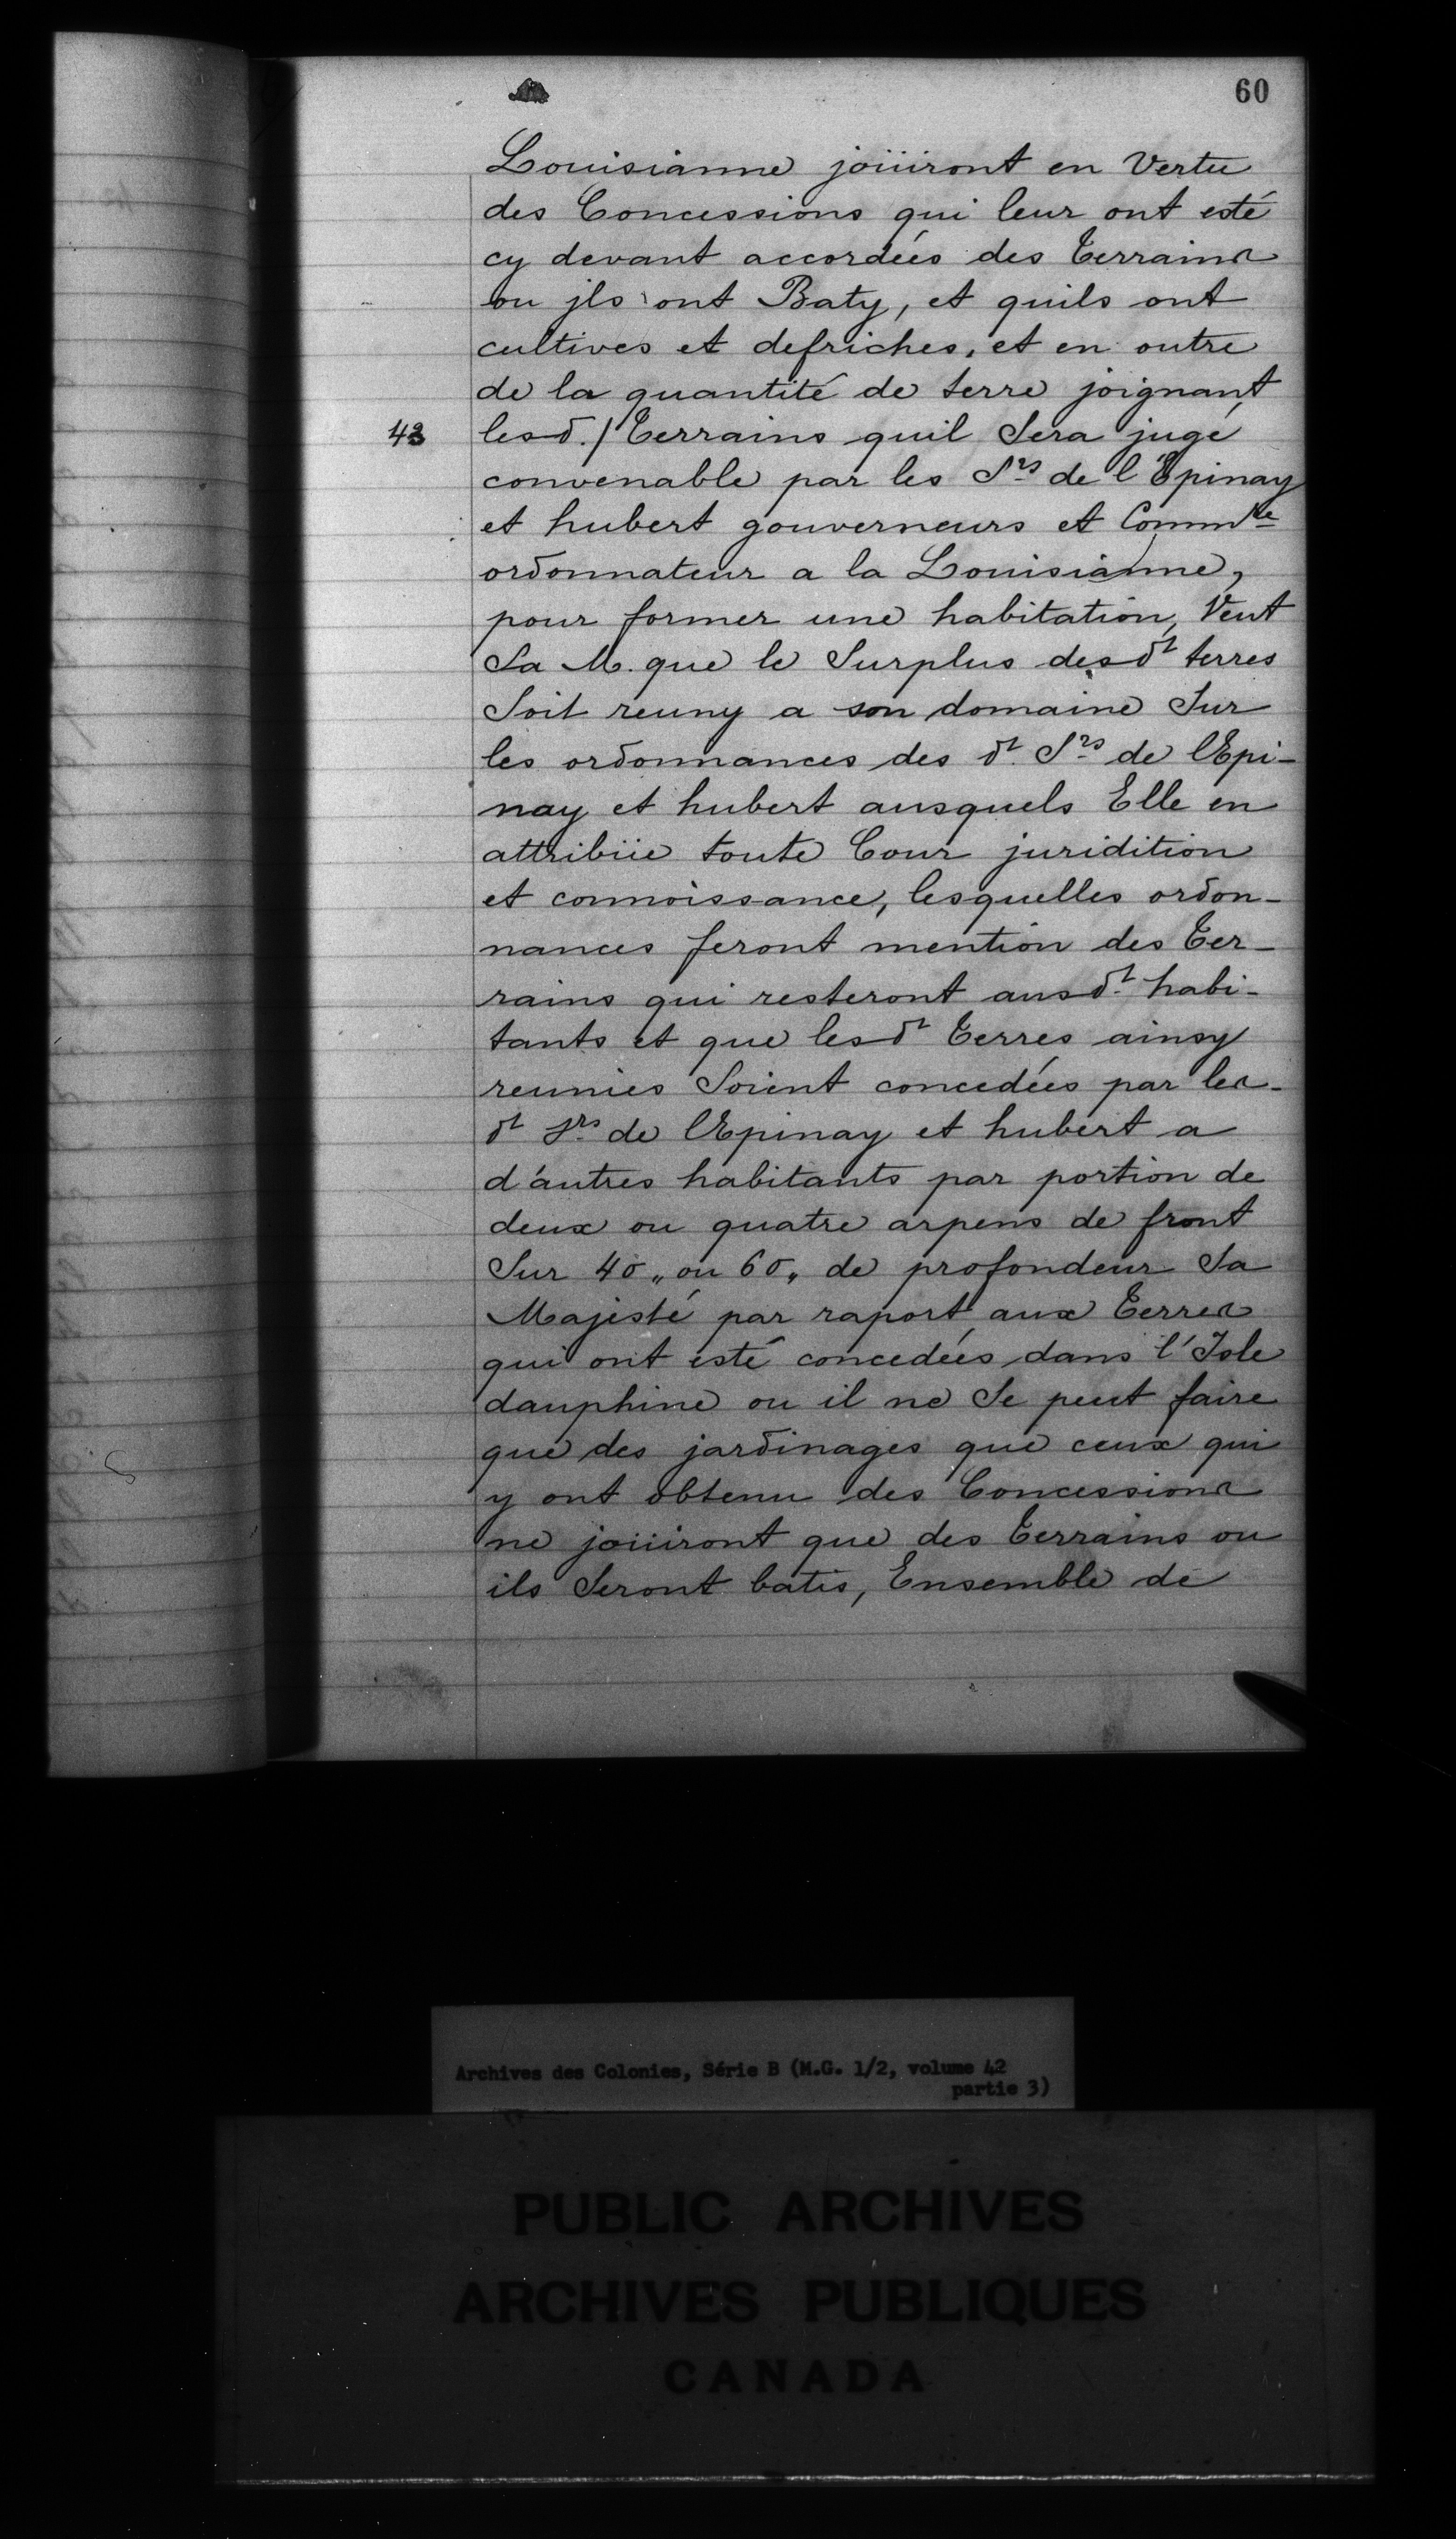 60
Louisianne joüiront en Vertu
des Concessions qui leur ont esté
cy devant accordées des terrains
ou jls ont Baty, et quils ont
cultives et defriches, et en outre
de la quantité de terre joignant
43 lesd./ terrains quil Sera jugé
convenable par les Srs de l'Epinay
et hubert gouverneurs et Commre
ordonnateur a la Louisianne,
pour former une habitation, Veut
Sa M. que le Surplus desdt terres
Soit reuny a son domaine Sur
les ordonnances des dt Srs de lEpi-
nay et hubert ausquels Elle en
attribüe toute Cour juridition
et connoissance, lesquelles ordon-
nances feront mention des ter-
rains qui resteront ausdt habi-
tants et que lesdt terres ainsy
reunies Soient concedées par les-
dt Srs de lEpinay et hubert a
d'autres habitants par portion de
deux ou quatre arpens de front
Sur 40 „ ou 60 „ de profondeur Sa
Majesté par raport aux terres
qui ont esté concedées dans l'Isle
dauphine ou il ne Se peut faire
que des jardinages que ceux qui
y ont obtenu des Concessions
ne joüiront que des terrains ou
ils Seront batis, Ensemble de
Archives des Colonies, Série B (M.G. 1/2, volume 42
partie 3)
PUBLIC ARCHIVES
ARCHIVES PUBLIQUES
CANADA